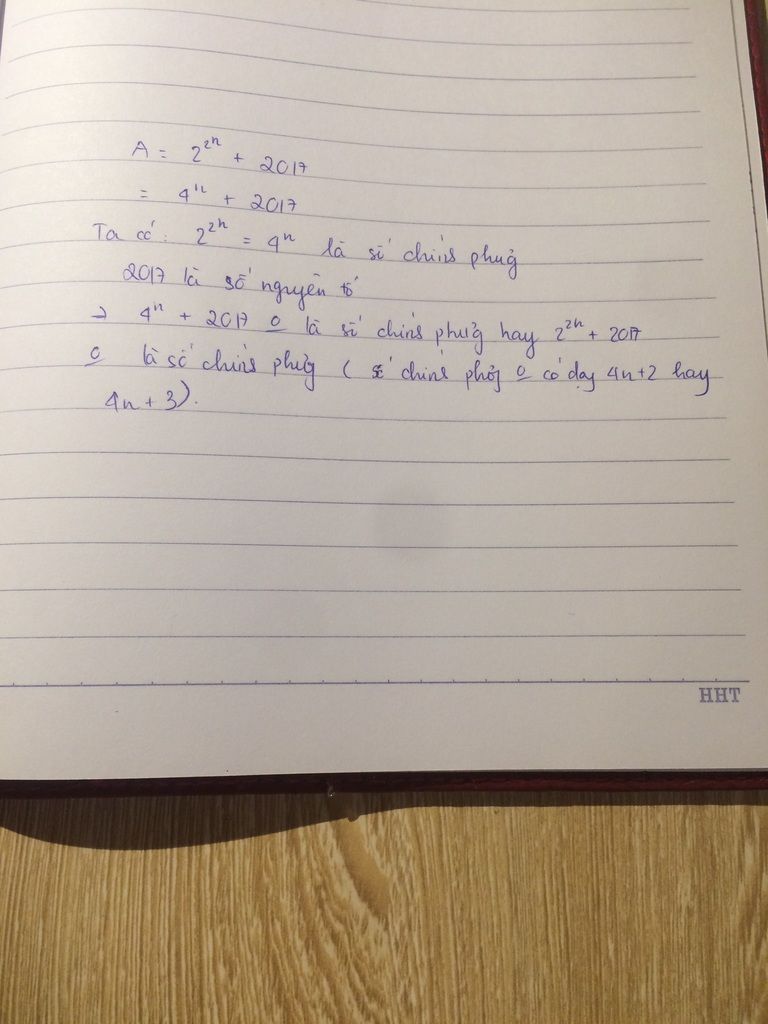 A = 2^{2^n} + 2017
= 4^n + 2017
Ta có: 2^{2^n} = 4^n là số chính phưg
2017 là số nguyên tố
→ 4^n + 2017 o là số chính phưg hay 2^{2^n} + 2017
o là số chính phưg ( số chính phưg o có dạg 4n+2 hay
4n + 3).
HHT